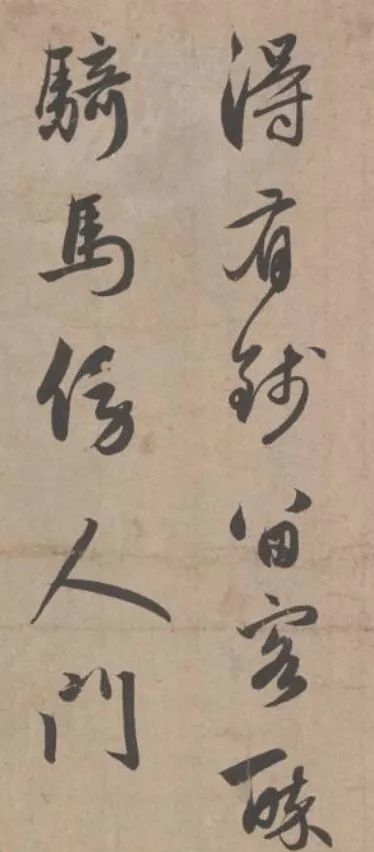 得有錢留客醉
騎馬傍人門